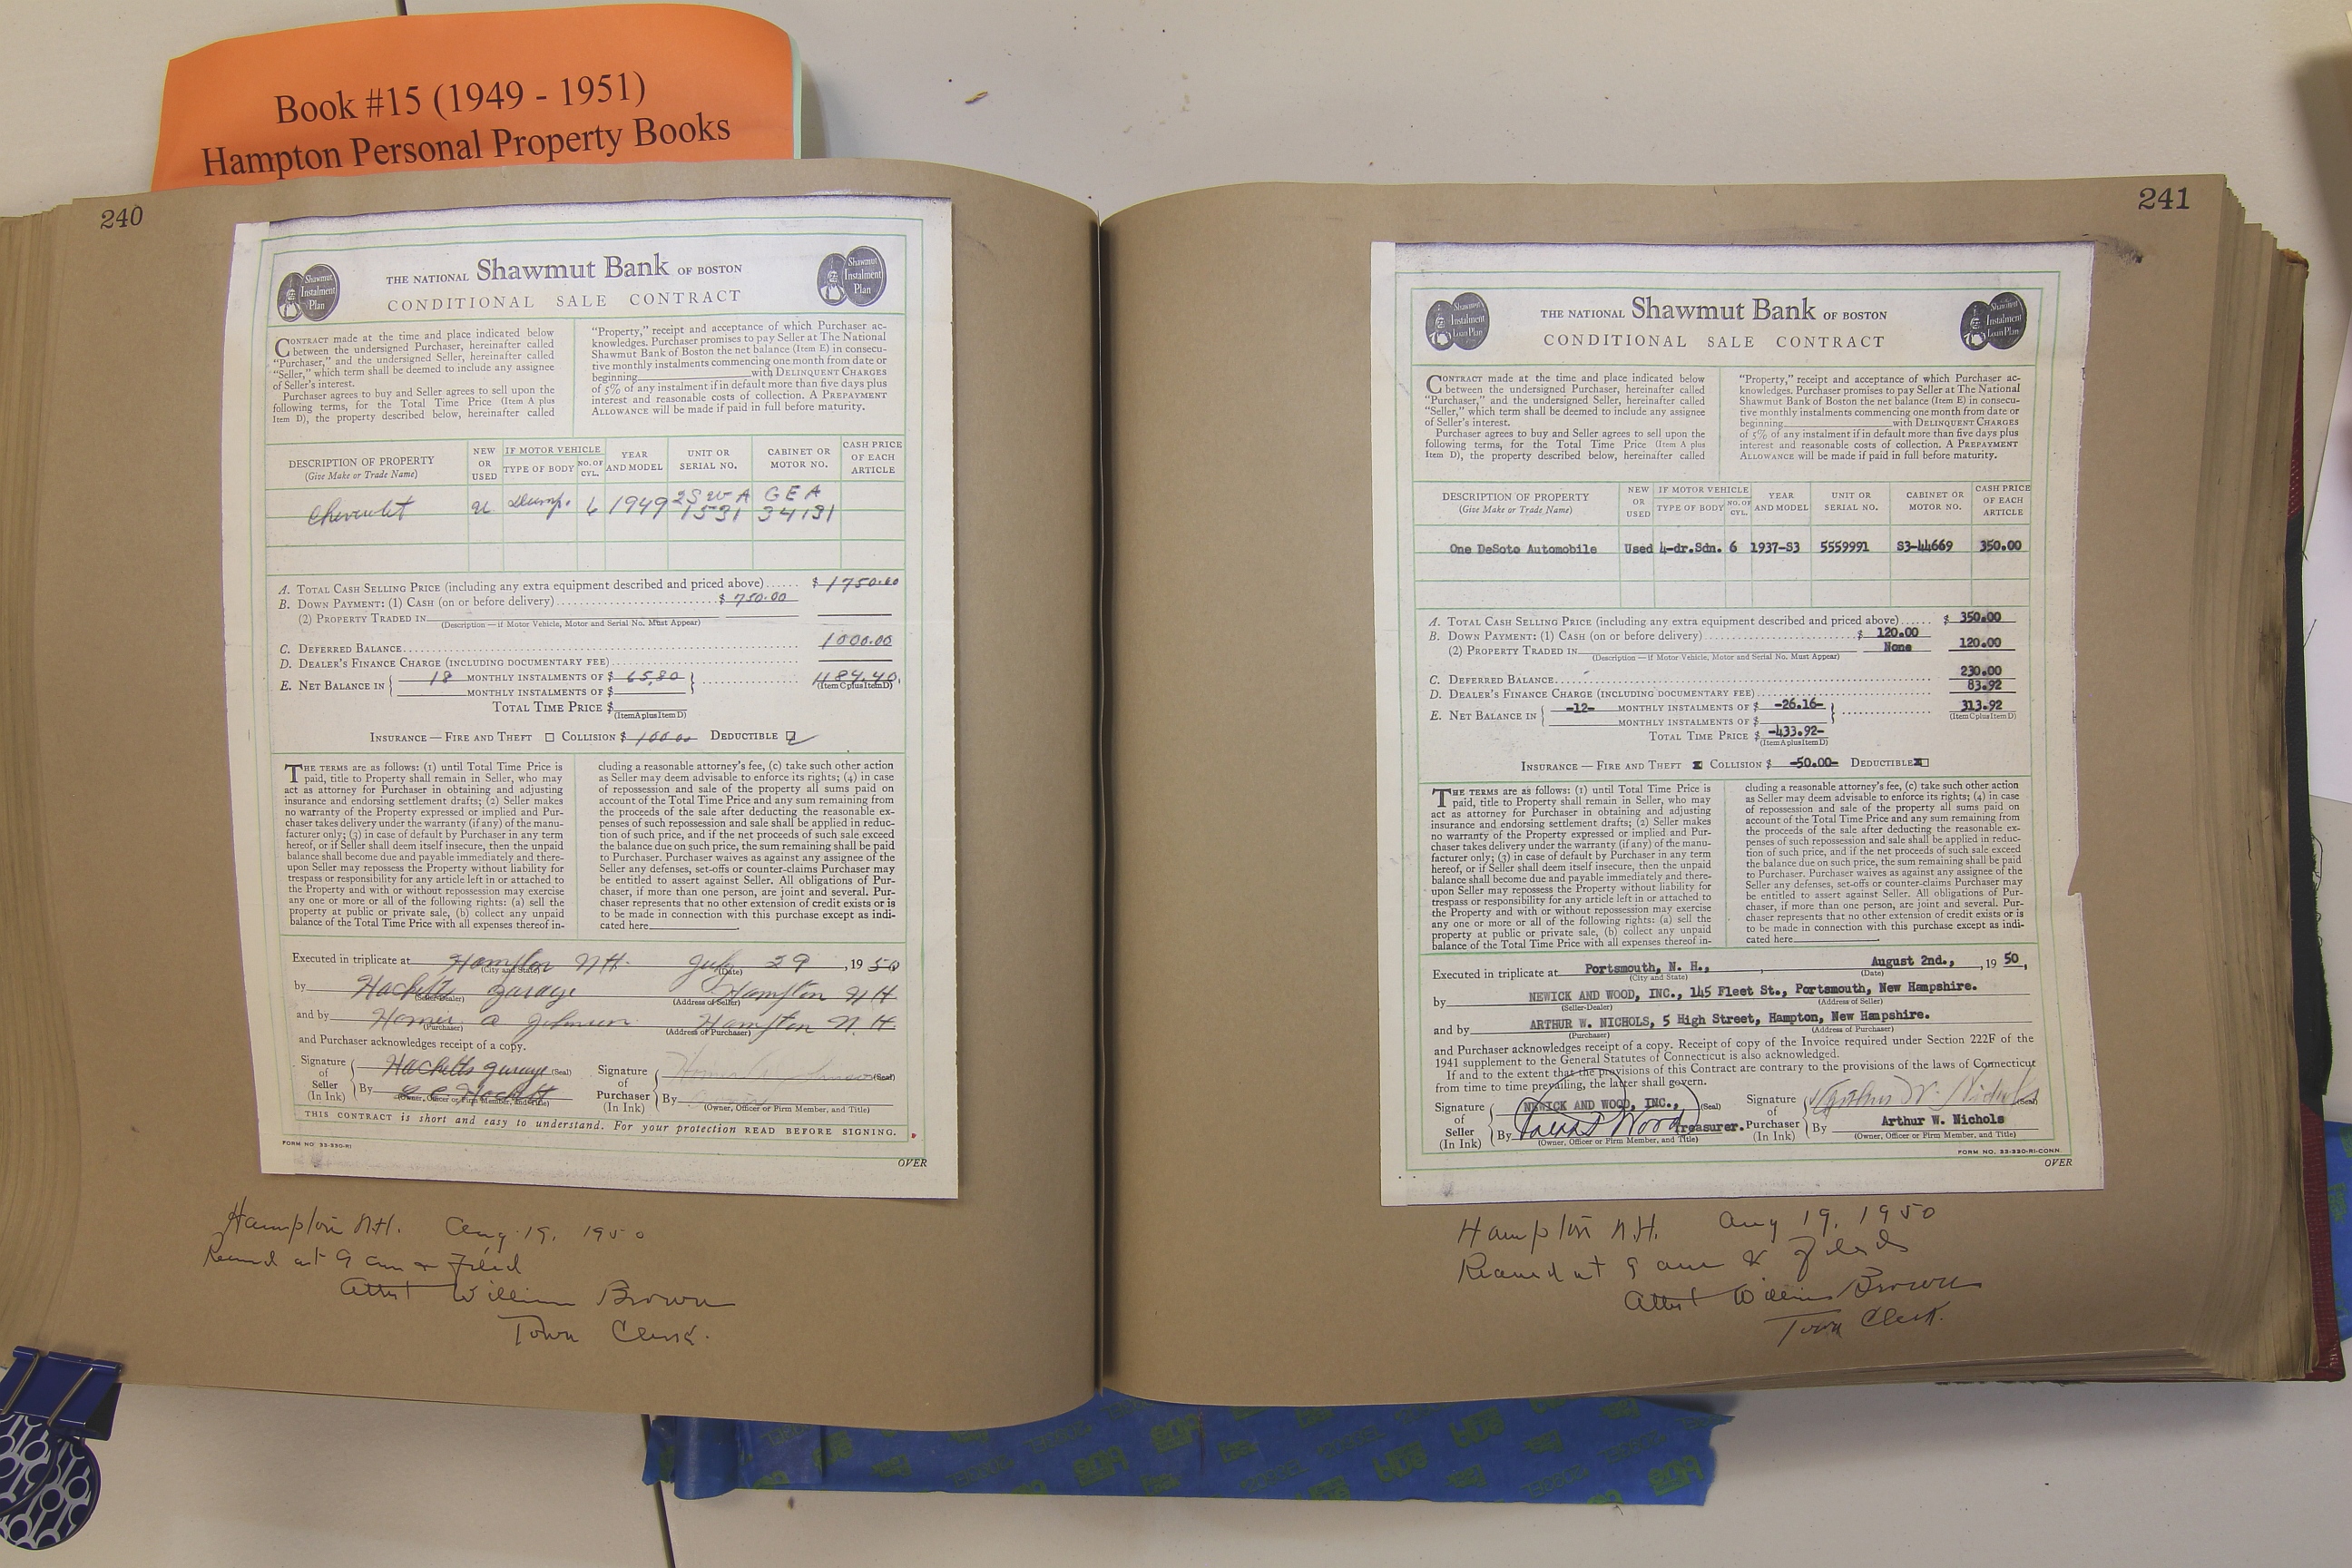 Book #15 (1949 - 1951)
Hampton Personal Property Books
240
Shawmut
Instalment
Plan
THE NATIONAL Shawmut Bank OF BOSTON
CONDITIONAL SALE CONTRACT
Shawmut
Instalment
Plan
CONTRACT made at the time and place indicated below
between the undersigned Purchaser, hereinafter called
"Purchaser," and the undersigned Seller, hereinafter called
"Seller," which term shall be deemed to include any assignee
of Seller's interest.
Purchaser agrees to buy and Seller agrees to sell upon the
following terms, for the Total Time Price (Item A plus
Item D), the property described below, hereinafter called
"Property," receipt and acceptance of which Purchaser ac-
knowledges. Purchaser promises to pay Seller at The National
Shawmut Bank of Boston the net balance (Item E) in consecu-
tive monthly instalments commencing one month from date or
beginning with DELINQUENT CHARGES
of 5% of any instalment if in default more than five days plus
interest and reasonable costs of collection. A PREPAYMENT
ALLOWANCE will be made if paid in full before maturity.
DESCRIPTION OF PROPERTY
(Give Make or Trade Name)
NEW
OR
USED
IF MOTOR VEHICLE
TYPE OF BODY
NO. OF
CYL.
YEAR
AND MODEL
UNIT OR
SERIAL NO.
CABINET OR
MOTOR NO.
CASH PRICE
OF EACH
ARTICLE
Chevrolet U Dump. 6 1949 2SWA 1531 GEA 34131
A. TOTAL CASH SELLING PRICE (including any extra equipment described and priced above)...... $ 1750.00
B. DOWN PAYMENT: (1) CASH (on or before delivery)........ $ 750.00
(2) PROPERTY TRADED IN
(Description — if Motor Vehicle, Motor and Serial No. Must Appear)
C. DEFERRED BALANCE........ 1000.00
D. DEALER'S FINANCE CHARGE (INCLUDING DOCUMENTARY FEE)........
E. NET BALANCE IN { 18 MONTHLY INSTALMENTS OF $ 65.80 } ........ 1184.40
MONTHLY INSTALMENTS OF $ (Item C plus Item D)
TOTAL TIME PRICE $
(Item A plus Item D)
INSURANCE — FIRE AND THEFT ☐ COLLISION $ 100.00 DEDUCTIBLE ☑
THE TERMS are as follows: (1) until Total Time Price is
paid, title to Property shall remain in Seller, who may
act as attorney for Purchaser in obtaining and adjusting
insurance and endorsing settlement drafts; (2) Seller makes
no warranty of the Property expressed or implied and Pur-
chaser takes delivery under the warranty (if any) of the manu-
facturer only; (3) in case of default by Purchaser in any term
hereof, or if Seller shall deem itself insecure, then the unpaid
balance shall become due and payable immediately and there-
upon Seller may repossess the Property without liability for
trespass or responsibility for any article left in or attached to
the Property and with or without repossession may exercise
any one or more or all of the following rights: (a) sell the
property at public or private sale, (b) collect any unpaid
balance of the Total Time Price with all expenses thereof in-
cluding a reasonable attorney's fee, (c) take such other action
as Seller may deem advisable to enforce its rights; (4) in case
of repossession and sale of the property all sums paid on
account of the Total Time Price and any sum remaining from
the proceeds of the sale after deducting the reasonable ex-
penses of such repossession and sale shall be applied in reduc-
tion of such price, and if the net proceeds of such sale exceed
the balance due on such price, the sum remaining shall be paid
to Purchaser. Purchaser waives as against any assignee of the
Seller any defenses, set-offs or counter-claims Purchaser may
be entitled to assert against Seller. All obligations of Pur-
chaser, if more than one person, are joint and several. Pur-
chaser represents that no other extension of credit exists or is
to be made in connection with this purchase except as indi-
cated here
Executed in triplicate at Hampton NH. July 29, 1950
(City and State) (Date)
by Hacketts Garage Hampton N H
(Seller-Dealer) (Address of Seller)
and by Homer A Johnson Hampton N. H.
(Purchaser) (Address of Purchaser)
and Purchaser acknowledges receipt of a copy.
Signature
of
Seller
(In Ink)
Hacketts garage (Seal)
By Hackett
(Owner, Officer or Firm Member, and Title)
Signature
of
Purchaser
(In Ink)
Homer A Johnson (Seal)
By
(Owner, Officer or Firm Member, and Title)
THIS CONTRACT is short and easy to understand. For your protection READ BEFORE SIGNING.
FORM NO. 33-330-RI
OVER
Hampton N.H. Aug. 19, 1950
Received at 9 am & Filed
Attest William Brown
Town Clerk.
241
Shawmut
Instalment
Loan Plan
THE NATIONAL Shawmut Bank OF BOSTON
CONDITIONAL SALE CONTRACT
Shawmut
Instalment
Loan Plan
CONTRACT made at the time and place indicated below
between the undersigned Purchaser, hereinafter called
"Purchaser," and the undersigned Seller, hereinafter called
"Seller," which term shall be deemed to include any assignee
of Seller's interest.
Purchaser agrees to buy and Seller agrees to sell upon the
following terms, for the Total Time Price (Item A plus
Item D), the property described below, hereinafter called
"Property," receipt and acceptance of which Purchaser ac-
knowledges. Purchaser promises to pay Seller at The National
Shawmut Bank of Boston the net balance (Item E) in consecu-
tive monthly instalments commencing one month from date or
beginning with DELINQUENT CHARGES
of 5% of any instalment if in default more than five days plus
interest and reasonable costs of collection. A PREPAYMENT
ALLOWANCE will be made if paid in full before maturity.
DESCRIPTION OF PROPERTY
(Give Make or Trade Name)
NEW
OR
USED
IF MOTOR VEHICLE
TYPE OF BODY
NO. OF
CYL.
YEAR
AND MODEL
UNIT OR
SERIAL NO.
CABINET OR
MOTOR NO.
CASH PRICE
OF EACH
ARTICLE
One DeSoto Automobile Used 4-dr.Sdn. 6 1937-S3 5559991 S3-44669 350.00
A. TOTAL CASH SELLING PRICE (including any extra equipment described and priced above)...... $ 350.00
B. DOWN PAYMENT: (1) CASH (on or before delivery)........ $ 120.00
(2) PROPERTY TRADED IN None 120.00
(Description — if Motor Vehicle, Motor and Serial No. Must Appear)
C. DEFERRED BALANCE........ 230.00
D. DEALER'S FINANCE CHARGE (INCLUDING DOCUMENTARY FEE)........ 83.92
E. NET BALANCE IN { -12- MONTHLY INSTALMENTS OF $ -26.16- } ........ 313.92
MONTHLY INSTALMENTS OF $ (Item C plus Item D)
TOTAL TIME PRICE $ -433.92-
(Item A plus Item D)
INSURANCE — FIRE AND THEFT ☒ COLLISION $ -50.00- DEDUCTIBLE ☒
THE TERMS are as follows: (1) until Total Time Price is
paid, title to Property shall remain in Seller, who may
act as attorney for Purchaser in obtaining and adjusting
insurance and endorsing settlement drafts; (2) Seller makes
no warranty of the Property expressed or implied and Pur-
chaser takes delivery under the warranty (if any) of the manu-
facturer only; (3) in case of default by Purchaser in any term
hereof, or if Seller shall deem itself insecure, then the unpaid
balance shall become due and payable immediately and there-
upon Seller may repossess the Property without liability for
trespass or responsibility for any article left in or attached to
the Property and with or without repossession may exercise
any one or more or all of the following rights: (a) sell the
property at public or private sale, (b) collect any unpaid
balance of the Total Time Price with all expenses thereof in-
cluding a reasonable attorney's fee, (c) take such other action
as Seller may deem advisable to enforce its rights; (4) in case
of repossession and sale of the property all sums paid on
account of the Total Time Price and any sum remaining from
the proceeds of the sale after deducting the reasonable ex-
penses of such repossession and sale shall be applied in reduc-
tion of such price, and if the net proceeds of such sale exceed
the balance due on such price, the sum remaining shall be paid
to Purchaser. Purchaser waives as against any assignee of the
Seller any defenses, set-offs or counter-claims Purchaser may
be entitled to assert against Seller. All obligations of Pur-
chaser, if more than one person, are joint and several. Pur-
chaser represents that no other extension of credit exists or is
to be made in connection with this purchase except as indi-
cated here
Executed in triplicate at Portsmouth, N. H., August 2nd., 19 50,
(City and State) (Date)
by NEWICK AND WOOD, INC., 145 Fleet St., Portsmouth, New Hampshire.
(Seller-Dealer) (Address of Seller)
and by ARTHUR W. NICHOLS, 5 High Street, Hampton, New Hampshire.
(Purchaser) (Address of Purchaser)
and Purchaser acknowledges receipt of a copy. Receipt of copy of the Invoice required under Section 222F of the
1941 supplement to the General Statutes of Connecticut is also acknowledged.
If and to the extent that the provisions of this Contract are contrary to the provisions of the laws of Connecticut
from time to time prevailing, the latter shall govern.
Signature
of
Seller
(In Ink)
NEWICK AND WOOD, INC., (Seal)
By Wood Treasurer.
(Owner, Officer or Firm Member, and Title)
Signature
of
Purchaser
(In Ink)
Arthur W. Nichols (Seal)
By Arthur W. Nichols
(Owner, Officer or Firm Member, and Title)
FORM NO. 33-330-RI-CONN.
OVER
Hampton N.H. Aug 19, 1950
Received at 9 am & filed
Attest William Brown
Town Clerk.